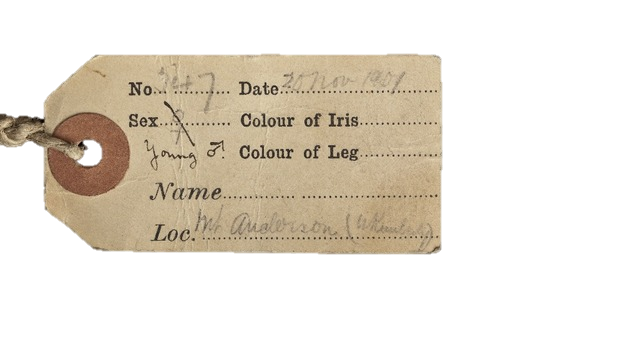 No. 7 Date 20 Nov 1901
Sex ♀ Colour of Iris
Young ♂ Colour of Leg
Name
Loc. Mt Anderson (W Kimberley)